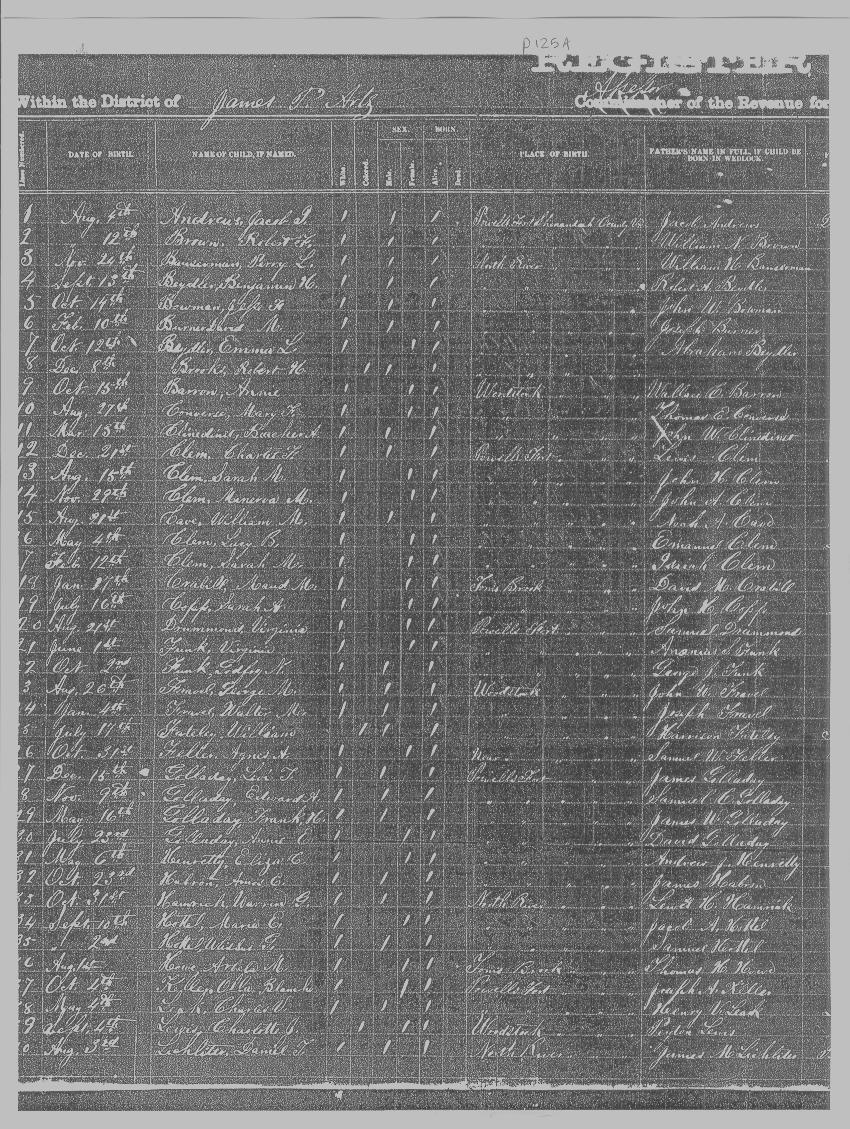 P 125A
REGISTER
Within the District of James P. Artz Assessor Commissioner of the Revenue for
Lines Numbered. DATE OF BIRTH. NAME OF CHILD, IF NAMED. White. Colored. SEX. Male. Female. BORN. Alive. Dead. PLACE OF BIRTH. FATHER'S NAME IN FULL, IF CHILD BE BORN IN WEDLOCK.
1 Aug. 4th Andrews, Jacob Powells Fort Shenandoah County Va Jacob Andrews
2 " 12th Brown, Robert William N. Brown
3 Nov. 24th Bauserman, Perry L. North River William H. Bauserman
4 Sept 13th Beydler, Benjamin H. Robert A. Beydler
5 Oct. 14th Bowman, H John W. Bowman
6 Feb. 10th M. Joseph Burner
7 Oct. 12th Beydler, Emma L. Abraham Beydler
8 Dec. 8th Brooks, Robert H
9 Oct. 15th Barron, Annie Woodstock Wallace C. Barron
10 Aug. 27th Converse, Mary F. Thomas E. Converse
11 Mar. 15th Clinedinst, A. John W. Clinedinst
12 Dec. 21st Clem, Powells Fort Lewis Clem
13 Aug. 15th Clem, Sarah M. John H. Clem
14 Nov. 29th Clem, Minerva M. John A. Clem
15 Aug. 21st Cave, William M. Noah A. Cave
6 May 4th Clem, Lucy B. Emanuel Clem
7 Feb. 12th Clem, Sarah M. Isaiah Clem
18 Jan 17th Crabill, Maud M. Toms Brook David M. Crabill
19 July 16th Copp, Sarah A John H. Copp
20 Aug. 21st Drummond, Virginia Powells Fort Samuel Drummond
21 June 1st Funk, Virginia Ananias Funk
22 Oct. 2nd Funk, Godfrey N. George J. Funk
3 Aug. 26th Fravel, George M. Woodstock John W. Fravel
4 Jan. 4th Fravel, Walter M. Joseph Fravel
5 July 17th William Harrison
6 Oct. 31st Feller, Agnes A. Near Samuel W. Feller
7 Dec. 15th Golladay, Levi F. Powells Fort James Golladay
8 Nov. 9th Golladay, Edward A. Samuel C. Golladay
29 May 16th Golladay, Frank H. James W. Golladay
30 July 23rd Golladay, Annie E. David Golladay
31 May 6th Henretty, Eliza C. Andrew J. Henretty
32 Oct. 23rd Habron, Amos C. James Habron
33 Oct. 31st Hamrick, Warren G. North River Lewis H. Hamrick
34 Sept. 10th Hottel, Maria E. Jacob A. Hottel
35 " 2nd Hottel, Samuel Hottel
6 Aug. 1st Howe, M. Toms Brook Thomas H. Howe
7 Oct. 4th Keller, Otta Blanche Powells Fort Joseph A. Keller
8 May 4th Charles Henry
9 Sept. 4th Lewis, Charlotte J. Woodstock Peyton Lewis
0 Aug. 3rd Lichliter, Daniel F. North River James M. Lichliter